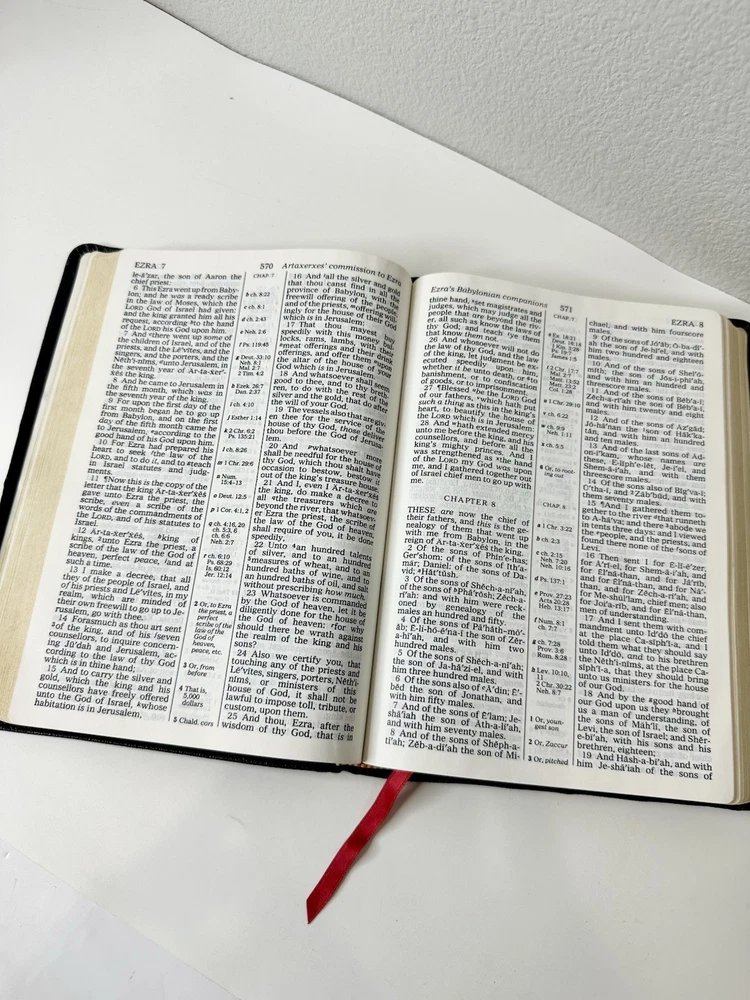 EZRA 7
570
Artaxerxes' commission to Ezra
le-ā'zar, the son of Aaron the
chief priest:
6 This Ezra went up from Baby-
lon; and he was a ready scribe
in the law of Moses, which the
LORD God of Israel had given:
and the king granted him all his
request, according to the hand of
the LORD his God upon him.
7 And there went up some of
the children of Israel, and of the
priests, and the Lē'vītes, and the
singers, and the porters, and the
Nĕth'i-nĭms, unto Jerusalem, in
the seventh year of Ar-ta-xer'-
xēs the king.
8 And he came to Jerusalem in
the fifth month, which was in
the seventh year of the king.
9 For upon the first day of the
first month began he to go up
from Babylon, and on the first
day of the fifth month came he
to Jerusalem, according to the
good hand of his God upon him.
10 For Ezra had prepared his
heart to seek the law of the
LORD, and to do it, and to teach
in Israel statutes and judg-
ments.
11 ¶Now this is the copy of the
letter that the king Ar-ta-xer'xēs
gave unto Ezra the priest, the
scribe, even a scribe of the
words of the commandments of
the LORD, and of his statutes to
Israel.
12 Ar-ta-xer'xēs, king of
kings, unto Ezra the priest, a
scribe of the law of the God of
heaven, perfect peace, and at
such a time.
13 I make a decree, that all
they of the people of Israel, and
of his priests and Lē'vītes, in my
realm, which are minded of
their own freewill to go up to Je-
rusalem, go with thee.
14 Forasmuch as thou art sent
of the king, and of his seven
counsellors, to inquire concern-
ing Jū'dah and Jerusalem, ac-
cording to the law of thy God
which is in thine hand;
15 And to carry the silver and
gold, which the king and his
counsellors have freely offered
unto the God of Israel, whose
habitation is in Jerusalem,
CHAP. 7
b ch. 8:22
c ch. 8:1
d ch. 2:43
e Neh. 2:6
f Ps. 119:45
g Deut. 33:10
Neh. 8:1
Mal. 2:7
2 Tim. 4:2
h Ezek. 26:7
Dan. 2:37
i ch. 4:10
j Esther 1:14
k 2 Chr. 6:2
Ps. 135:21
l ch. 8:25
m 1 Chr. 29:6
n Num.
15:4-13
o Deut. 12:5
p 1 Cor. 4:1, 2
q ch. 4:16, 20
ch. 5:3, 6
ch. 6:6
Neh. 2:7
r ch. 6:10
Ps. 68:29
Is. 60:12
Jer. 12:14
2 Or, to Ezra
the priest, a
perfect
scribe of the
law of the
God of
heaven,
peace, etc.
3 Or, from
before
4 That is,
5,000
dollars
5 Chald. cors
16 And all the silver and gold
that thou canst find in all the
province of Babylon, with the
freewill offering of the people,
and of the priests, offering will-
ingly for the house of their God
which is in Jerusalem:
17 That thou mayest buy
speedily with this money bul-
locks, rams, lambs, with their
meat offerings and their drink
offerings, and offer them upon
the altar of the house of your
God which is in Jerusalem.
18 And whatsoever shall seem
good to thee, and to thy breth-
ren, to do with the rest of the
silver and the gold, that do after
the will of your God.
19 The vessels also that are giv-
en thee for the service of the
house of thy God, those deliver
thou before the God of Jerusa-
lem.
20 And whatsoever more
shall be needful for the house of
thy God, which thou shalt have
occasion to bestow, bestow it
out of the king's treasure house.
21 And I, even I Ar-ta-xer'xēs
the king, do make a decree to
all the treasurers which are
beyond the river, that whatsoev-
er Ezra the priest, the scribe of
the law of the God of heaven,
shall require of you, it be done
speedily,
22 Unto an hundred talents
of silver, and to an hundred
measures of wheat, and to an
hundred baths of wine, and to
an hundred baths of oil, and salt
without prescribing how much.
23 Whatsoever is commanded
by the God of heaven, let it be
diligently done for the house of
the God of heaven: for why
should there be wrath against
the realm of the king and his
sons?
24 Also we certify you, that
touching any of the priests and
Lē'vītes, singers, porters, Nĕth'i-
nĭms, or ministers of this
house of God, it shall not be
lawful to impose toll, tribute, or
custom, upon them.
25 And thou, Ezra, after the
wisdom of thy God, that is in
Ezra's Babylonian companions
571
EZRA 8
thine hand, set magistrates and
judges, which may judge all the
people that are beyond the riv-
er, all such as know the laws of
thy God; and teach ye them
that know them not.
26 And whosoever will not do
the law of thy God, and the law
of the king, let judgment be ex-
ecuted speedily upon him,
whether it be unto death, or to
banishment, or to confiscation
of goods, or to imprisonment.
27 ¶Blessed be the LORD God
of our fathers, which hath put
such a thing as this in the king's
heart, to beautify the house of
the LORD which is in Jerusalem:
28 And hath extended mercy
unto me before the king, and his
counsellors, and before all the
king's mighty princes. And I
was strengthened as the hand
of the LORD my God was upon
me, and I gathered together out
of Israel chief men to go up with
me.
CHAPTER 8
THESE are now the chief of
their fathers, and this is the ge-
nealogy of them that went up
with me from Babylon, in the
reign of Ar-ta-xer'xēs the king.
2 Of the sons of Phĭn'e-has;
Ger'shom: of the sons of Ĭth'a-
mär; Daniel: of the sons of Da-
vid; Hăt'tŭsh.
3 Of the sons of Shĕch-a-nī'ah,
of the sons of Phā'rŏsh; Zĕch-a-
rī'ah: and with him were reck-
oned by genealogy of the
males an hundred and fifty.
4 Of the sons of Pā'hăth-mō'-
ăb; Ĕl-i-hō-ē'na-ī the son of Zĕr-
a-hī'ah, and with him two
hundred males.
5 Of the sons of Shĕch-a-nī'ah;
the son of Ja-hā'zi-el, and with
him three hundred males.
6 Of the sons also of Ā'din; Ē'-
bĕd the son of Jonathan, and
with him fifty males.
7 And of the sons of Ē'lam; Je-
shā'iah the son of Ăth-a-lī'ah,
and with him seventy males.
8 And of the sons of Shĕph-a-
tī'ah; Zĕb-a-dī'ah the son of Mī-
CHAP. 7
s Ex. 18:21
Deut. 16:18
f ch. 6:22
w ch. 9:9
Neh. 1:11
x ch. 5:5
6 Or, to root-
ing out
CHAP. 8
a 1 Chr. 3:22
b ch. 2:3
c ch. 2:15
Neh. 7:20
Neh. 10:16
d Ps. 137:1
e Prov. 27:23
Acts 20:28
Heb. 13:17
f Num. 8:1
ch. 7:7
g ch. 7:28
Prov. 3:6
Rom. 8:28
h Lev. 10:10,
11
2 Chr. 30:22
Neh. 8:7
1 Or, youn-
gest son
2 Or, Zaccur
3 Or, pitched
chael, and with him fourscore
males.
9 Of the sons of Jō'ăb; Ō-ba-dī'-
ah the son of Je-hī'el, and with
him two hundred and eighteen
males.
10 And of the sons of Shĕl'o-
mĭth; the son of Jŏs-i-phī'ah,
and with him an hundred and
threescore males.
11 And of the sons of Bĕb'a-ī;
Zĕch-a-rī'ah the son of Bĕb'a-ī,
and with him twenty and eight
males.
12 And of the sons of Az'găd;
Jō-hā'nan the son of Hăk'ka-
tăn, and with him an hundred
and ten males.
13 And of the last sons of Ad-
on-ī'kam, whose names are
these, E-lĭph'e-lĕt, Je-ī'el, and
Shem-a-ī'ah, and with them
threescore males.
14 Of the sons also of Bĭg'va-ī;
Ū'tha-ī, and Zăb'bŭd, and with
them seventy males.
15 ¶And I gathered them to-
gether to the river that runneth
to A-hā'va; and there abode we
in tents three days: and I viewed
the people, and the priests, and
found there none of the sons of
Levi.
16 Then sent I for Ĕ-li-ē'zer,
for Ā'ri-el, for Shem-a-ī'ah, and
for Ĕl'nā-than, and for Jā'rib,
and for Ĕl'nā-than, and for Nā'-
than, and for Zĕch-a-rī'ah, and
for Me-shŭl'lam, chief men; also
for Joi'a-rib, and for Ĕl'nā-than,
men of understanding.
17 And I sent them with com-
mandment unto Id'dō the chief
at the place Ca-sĭph'i-a, and I
told them what they should say
unto Id'dō, and to his brethren
the Nĕth'i-nĭms, at the place Ca-
sĭph'i-a, that they should bring
unto us ministers for the house
of our God.
18 And by the good hand of
our God upon us they brought
us a man of understanding, of
the sons of Măh'lī, the son of
Levi, the son of Israel; and Shĕr-
e-bī'ah, with his sons and his
brethren, eighteen;
19 And Hăsh-a-bī'ah, and with
him Je-shā'iah of the sons of